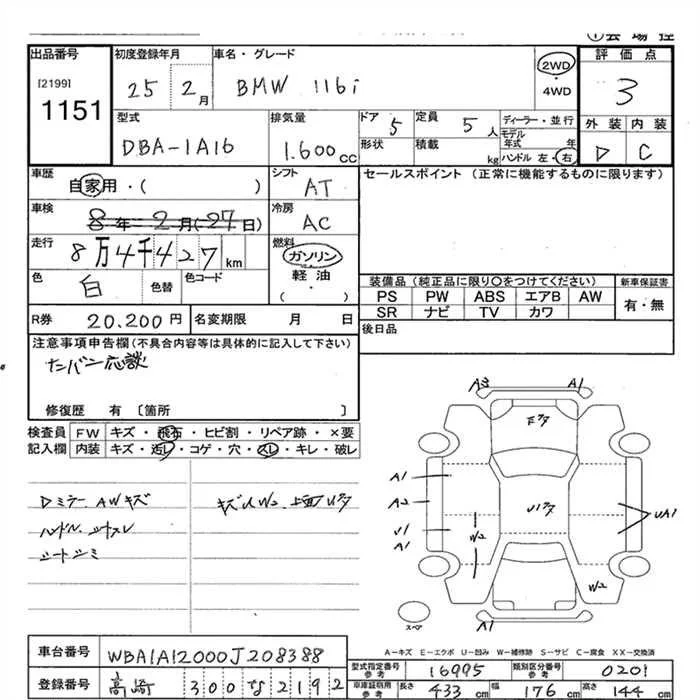 ①会場控
出品番号 初度登録年月 車名・グレード 2WD 評価点
[2199] 25 2月 BMW 116i ・4WD 3
1151
型式 排気量 ドア 5 定員 5人 ディーラー・並行 外装 内装
DBA-1A16 1.600CC 形状 積載 kg モデル年式 年 D C
ハンドル 左・右
車歴 自家用・( ) シフト AT セールスポイント(正常に機能するものに限ります)
車検 8年2月(27日) 冷房 AC
走行 8万4千427km 燃料 ガソリン
軽油
・( )
色 白 色替 色コード 装備品(純正品に限り○をつけてください) 新車保証書
PS PW ABS エアB AW 有・無
SR ナビ TV カワ
R券 20.200円 名変期限 月 日 後日品
注意事項申告欄(不具合内容等は具体的に記入して下さい)
ナンバン応談
修復歴 有 [箇所 ]
検査員 FW キズ・飛石・ヒビ割・リペア跡・×要
記入欄 内装 キズ・汚レ・コゲ・穴・スレ・キレ・破レ
Dミラー AWキズ
ハンドル・シートスレ
シートシミ
A3 A1
A1
A2
U1
A1
W2
UA1
W2
スペア A1
A-キズ E-エクボ U-凹み W-補修跡 S-サビ C-腐食 XX-交換済
車台番号 WBA1A12000J208388 型式指定番号 参考 16995 類別区分番号 参考 0201
登録番号 高崎 300 な 2192 車庫証明用 参考 長さ 433cm 幅 176cm 高さ 144cm